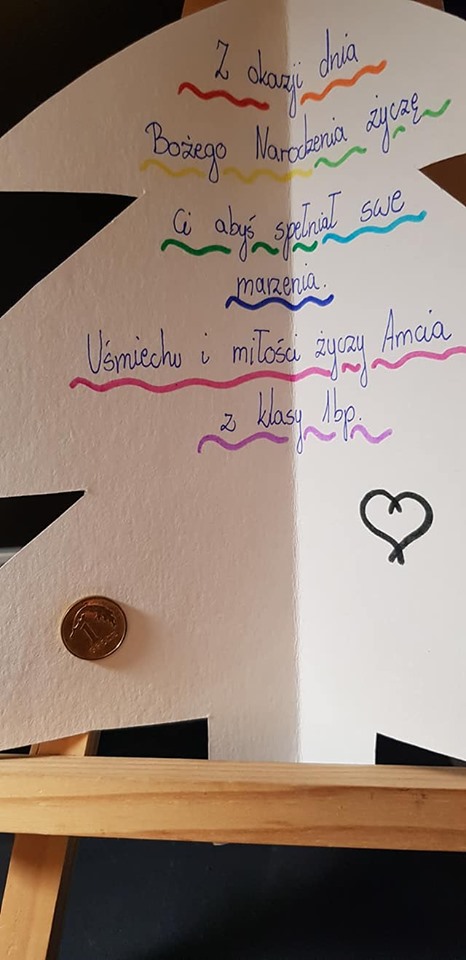 Z okazji dnia
Bożego Narodzenia życzę
Ci abyś spełniał swe
marzenia.
Uśmiechu i miłości życzy Amcia
z klasy 1bp.
1
GROSZ